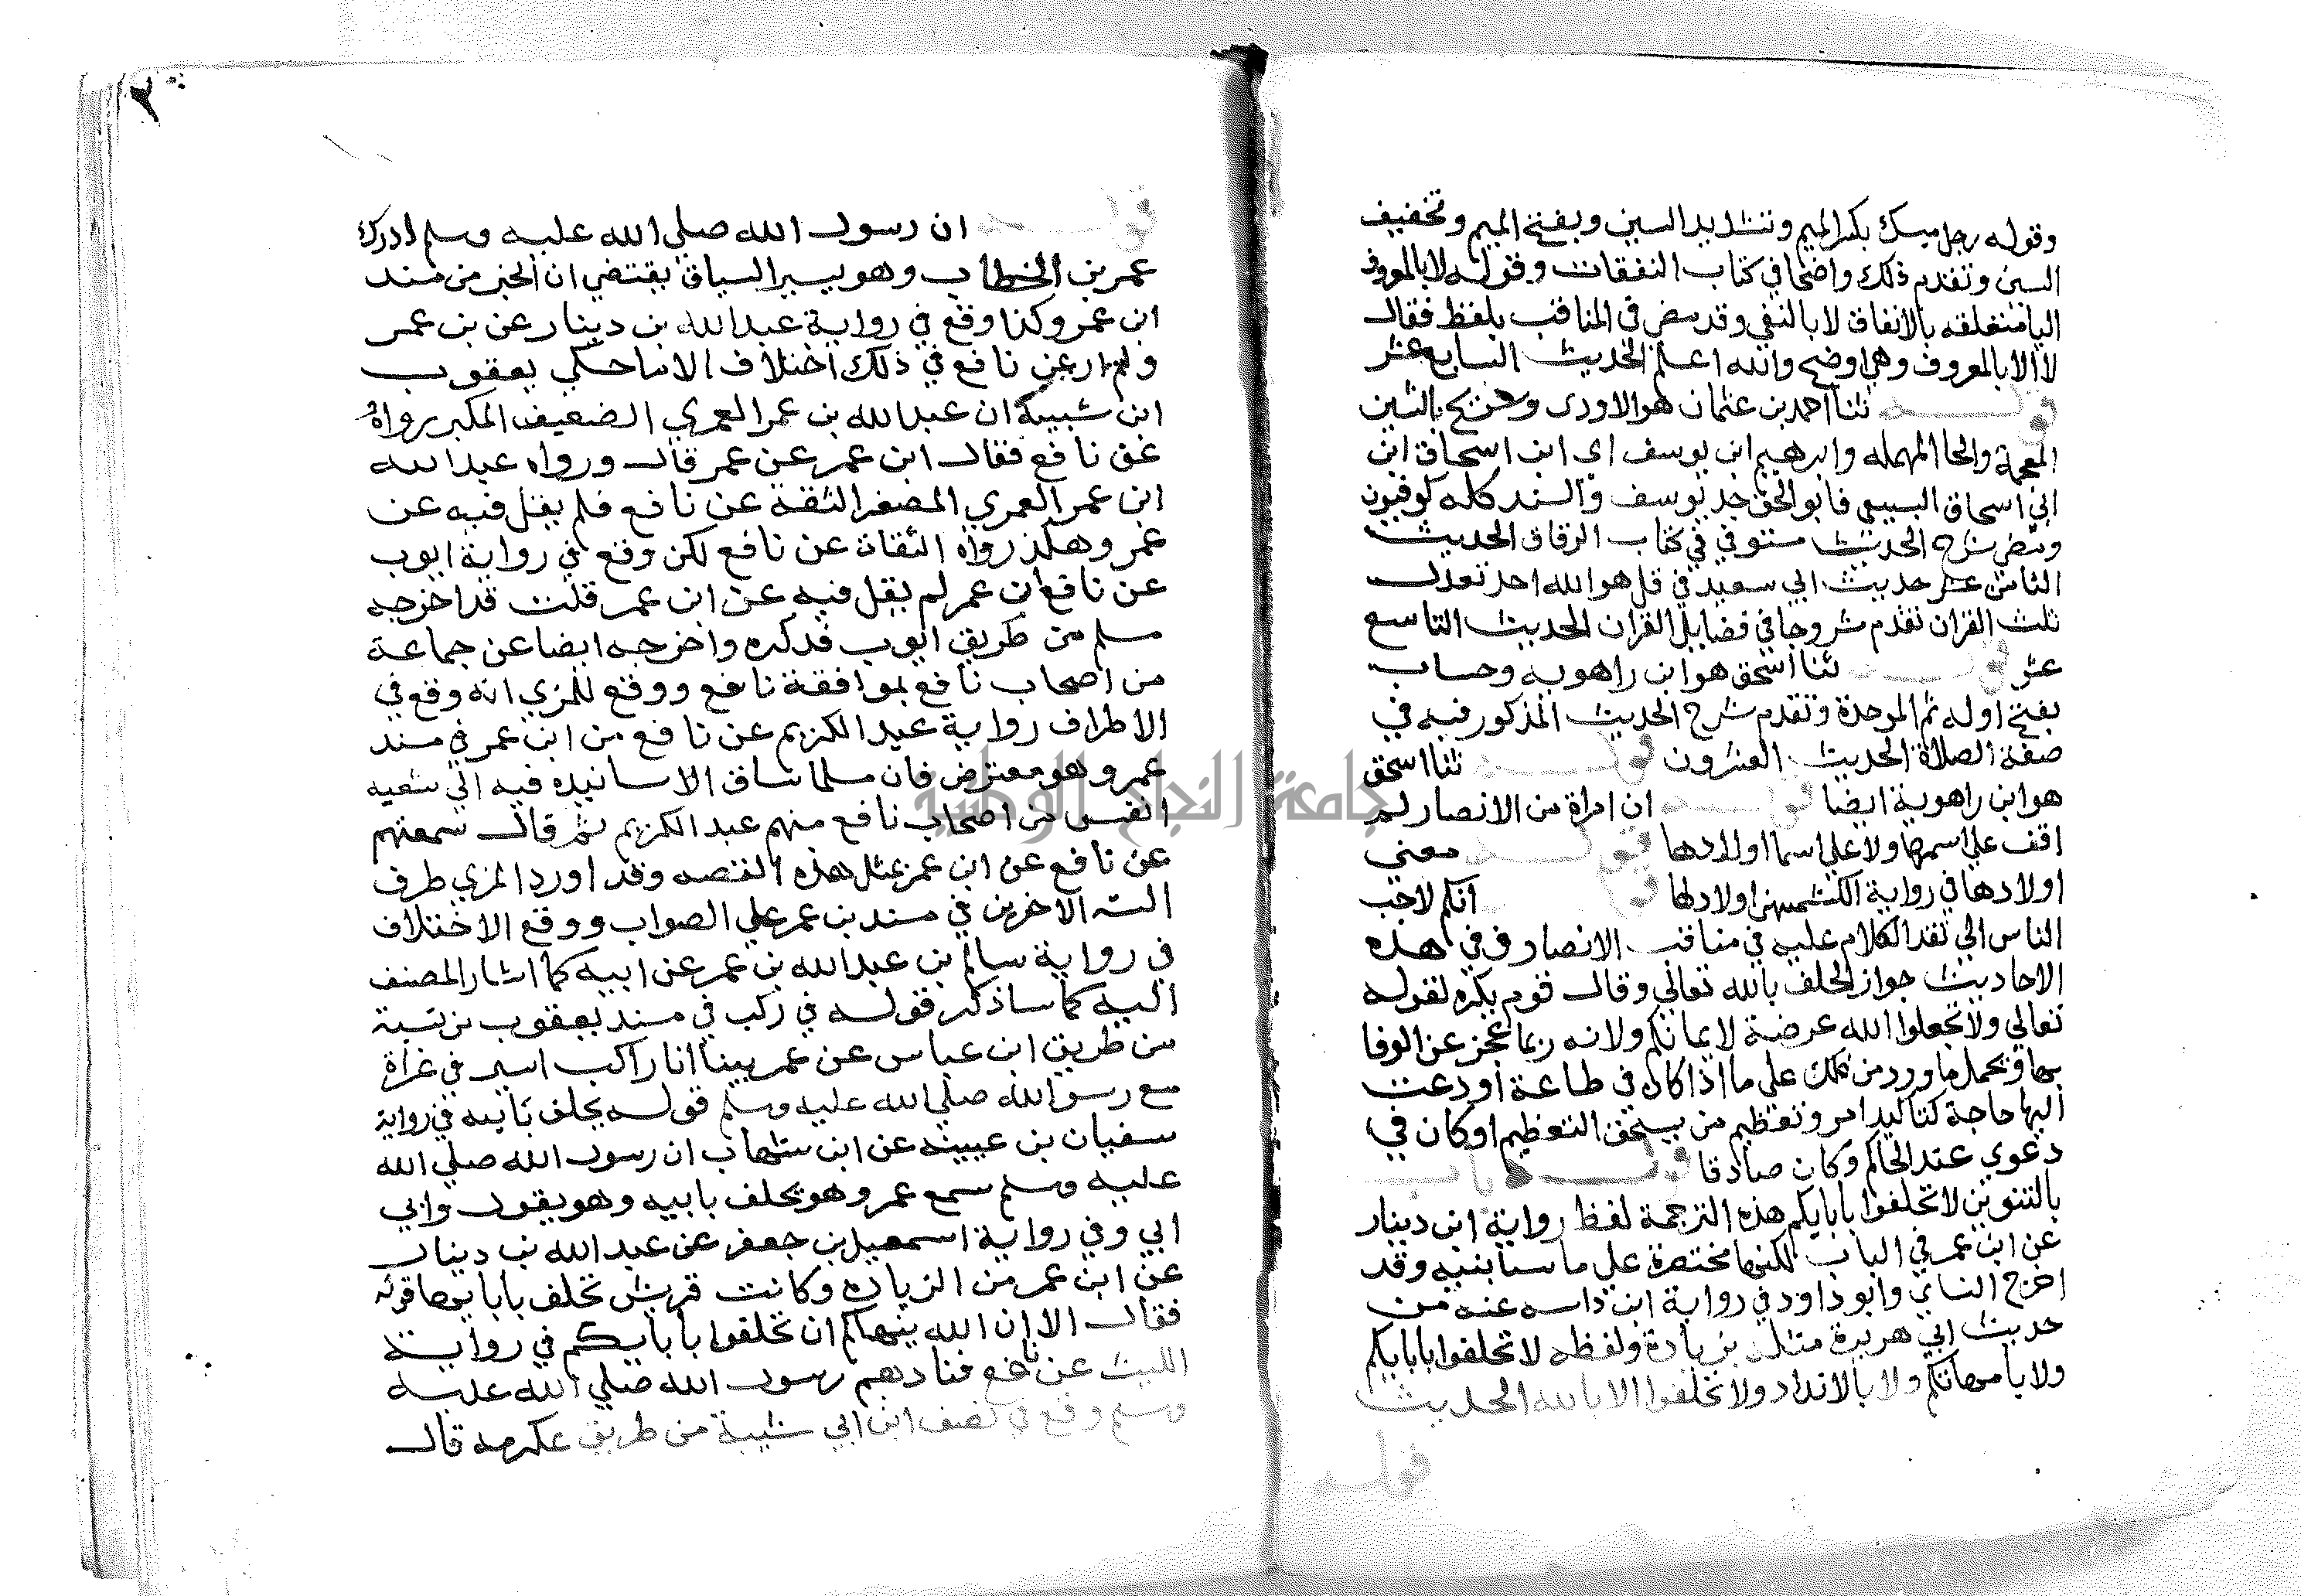 وقوله رجل مسيك بكسر الميم وتشديد السين وبفتح الميم وتخفيف
السين وتقدم ذلك واضحا في كتاب النفقات وقوله لا بالمعروف
البا متعلقه بالانفاق لا بالنفي وقد مضى في المناقب بلفظ فقال
لا الا بالمعروف وهي اوضح والله اعلم الحديث السابع عشر
قوله ثنا احمد بن عثمان هو الاودى وشريح بالشين
المعجمة والحا المهمله وابرهيم ابن يوسف اي ابن اسحاق ابن
ابي اسحاق السبيعي فابو اسحق جد يوسف والسند كله كوفيون
ومضى شرح الحديث مستوفي في كتاب الرقاق الحديث
الثامن عشر حديث ابي سعيد في قل هو الله احد تعدل
ثلث القران تقدم مشروحا في فضايل القران الحديث التاسع
عشر قوله ثنا اسحق هو ابن راهويه وحساب
بفتح اوله ثم الموحدة وتقدم شرح الحديث المذكور فيه في
صفة الصلاة الحديث العشرون قوله ثنا اسحق
هو ابن راهوية ايضا قوله ان امراة من الانصار لم
اقف علي اسمها ولا علي اسما اولادها قوله معني
اولادها في رواية الكشميهني اولاد لها قوله انكم لاحب
الناس الي تقد الكلام عليه في مناقب الانصار وفي هذه
الاحاديث جواز الحلف بالله تعالي وقال قوم يكره لقوله
تعالي ولا تجعلوا الله عرضة لايمانكم ولانه ربما عجز عن الوفا
بها ويحمل ما ورد من ذلك علي ما اذا كان في طاعة او دعت
اليها حاجة كتاكيد امر وتعظيم من يستحق التعظيم او كان في
دعوي عند الحاكم وكان صادقا قوله باب
بالتنوين لا تحلفوا بابايكم هذه الترجمة لفظ رواية ابن دينار
عن ابن عمر في الباب لكنها مختصرة علي ما سنابينه وقد
اخرج النساي وابو داود في رواية ابن داسه عنه من
حديث ابي هريرة مثله بزيادة ولفظه لا تحلفوا بابايكم
ولا بامهاتكم ولا بالانداد ولا تحلفوا الا بالله الحديث
قوله
٢
قوله ان رسول الله صلي الله عليه وسلم ادرك
عمر بن الخطاب وهو يسير السياق يقتضي ان الخبر من مسند
ابن عمر وكذا وقع في رواية عبد الله بن دينار عن بن عمر
ولم ار عن نافع في ذلك اختلاف الا ما حكي يعقوب
ابن شيبة ان عبد الله بن عمر العمري الضعيف المكبر رواه
عن نافع فقال ابن عمر عن عمر قال ورواه عبد الله
ابن عمر العمري المصغر الثقة عن نافع فلم يقل فيه عن
عمر وهكذ رواه الثقات عن نافع لكن وقع في رواية ايوب
عن نافع ان عمر لم يقل فيه عن ابن عمر قلت قد اخرجه
مسلم من طريق ايوب فذكره واخرجه ايضا عن جماعة
من اصحاب نافع بموافقة نافع ووقع للمزي انه وقع في
الاطراف رواية عبد الكريم عن نافع من ابن عمر في مسند
عمر وهو معترض فان مسلما ساق الاسانيده فيه الي سعيه
انفس من اصحاب نافع منهم عبد الكريم ثم قال سمعتهم
عن نافع عن ابن عمر بمثل هذه القصه وقد اورد المزي طرف
السته الاخرين في مسند بن عمر علي الصواب ووقع الاختلاف
في رواية سالم بن عبد الله بن عمر عن ابيه كما اشار المصنف
اليه كما ساذكر قوله في ركب في مسند يعقوب بن شيبة
من طريق ابن عباس عن عمر بينا انا راكب اسير في غراة
مع رسو الله صلي الله عليه وسلم قوله يحلف بابيه في رواية
سفيان بن عيينه عن ابن شهاب ان رسول الله صلي الله
عليه وسلم سمع عمر وهو يحلف بابيه وهو يقول وابي
ابي وفي رواية اسمعيل بن جعفر عن عبد الله بن دينار
عن ابن عمر من الزياده وكانت قريش تحلف بابايها قوله
فقال الا ان الله ينهاكم ان تحلفوا بابايكم في رواية
الليث عن نافع فناداهم رسول الله صلي الله عليه
وسلم وقع في تصنف ابن ابي شيبة من طريق عكرمه قال
جامعة النجاح الوطنية